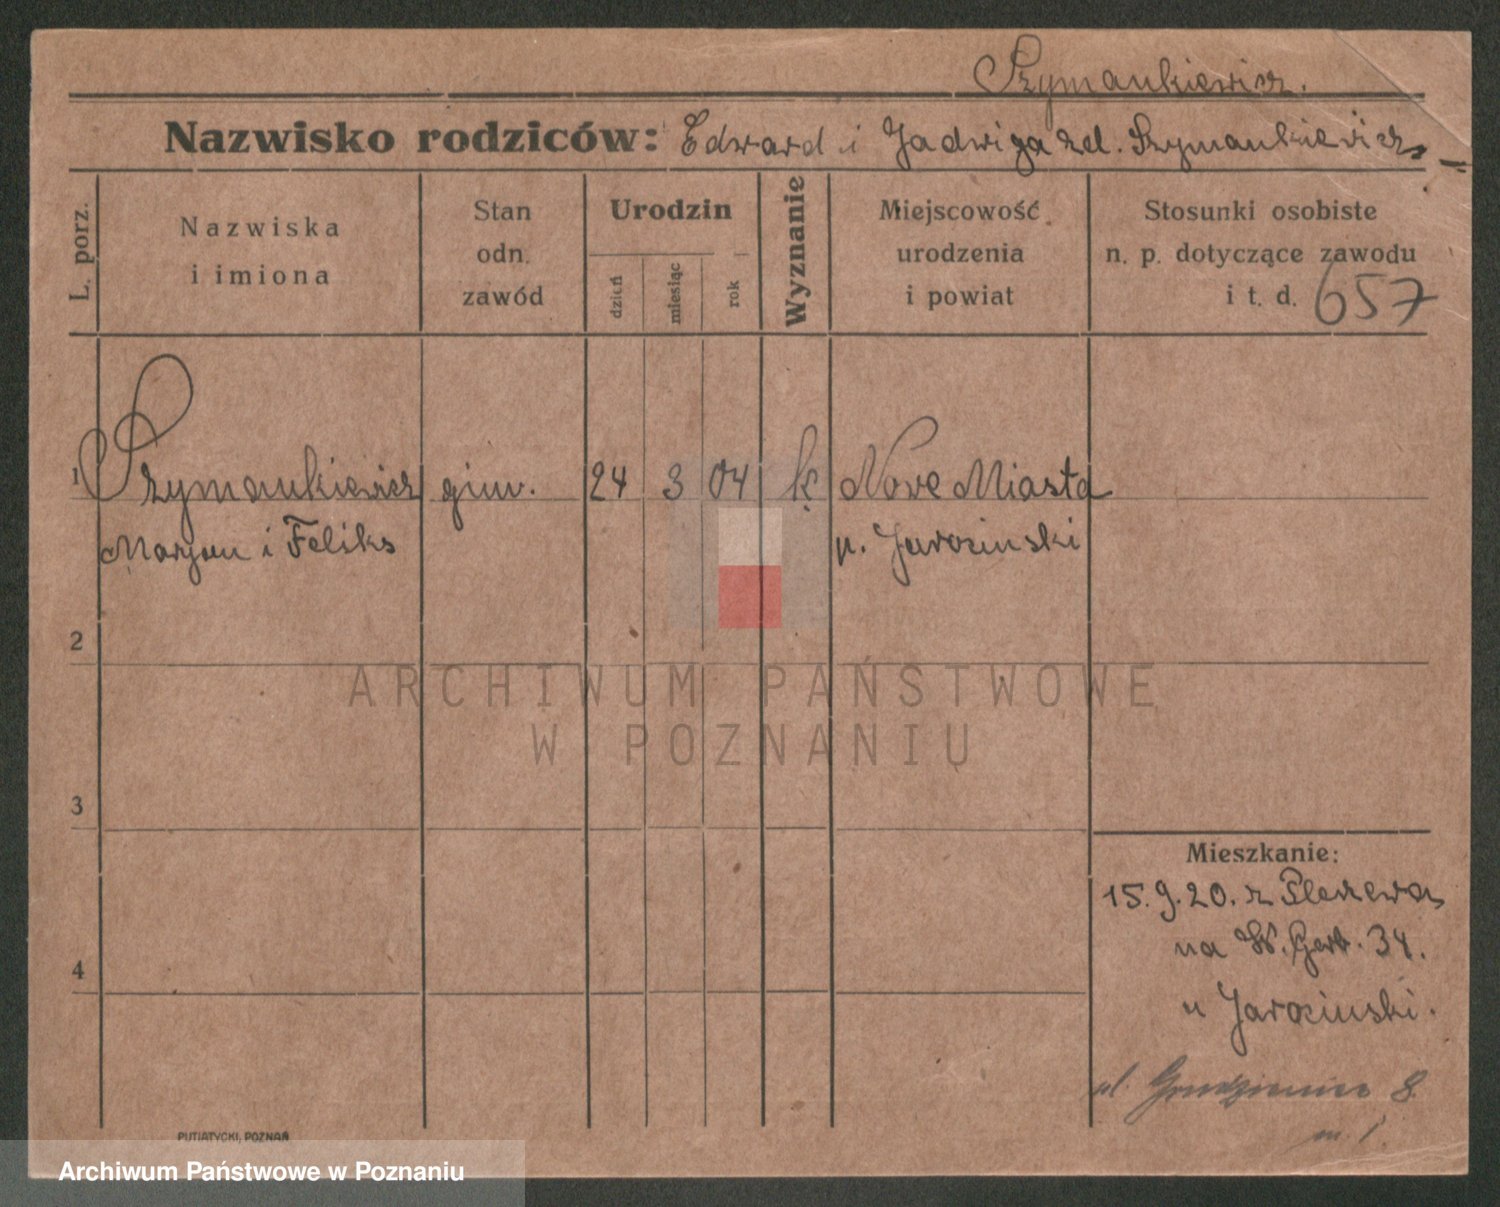 Szymankiewicz.
Nazwisko rodziców: Edward i Jadwiga zd. Szymankiewicz
L. porz.
Nazwiska
i imiona
Stan
odn.
zawód
Urodzin
dzień
miesiąc
rok
Wyznanie
Miejscowość
urodzenia
i powiat
Stosunki osobiste
n. p. dotyczące zawodu
i t. d.
657
1 Szymankiewicz gimn. 24 3 04 k. Nowe Miasta
Marjan i Feliks p. Jarocinski
2
ARCHIWUM PAŃSTWOWE
W POZNANIU
3
Mieszkanie:
15.9.20. z Pleszewa
na W. Garb. 34.
4
u Jarocinski.
ul. 8
m. 1.
PUTIATYCKI, POZNAŃ
Archiwum Państwowe w Poznaniu